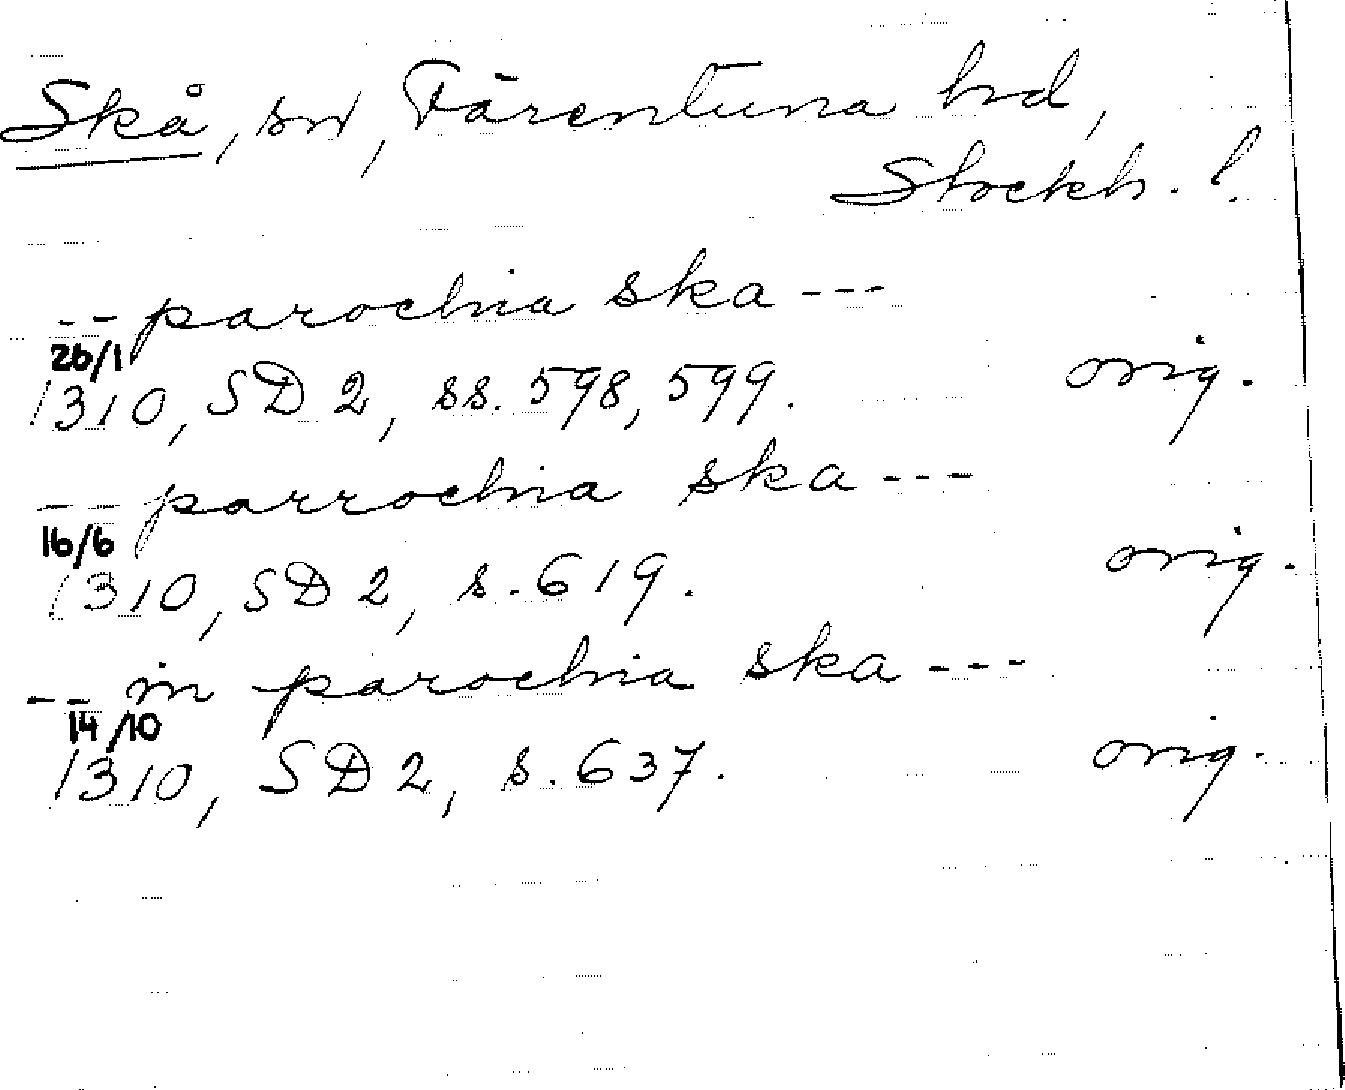 Skå, sn, Färentuna hd,
Stockh. l.
-- parochia ska ---
26/1
1310, SD 2, ss. 598, 599. orig.
-- parrochia ska ---
16/6
1310, SD 2, s. 619. orig.
-- in parochia ska ---
14/10
1310, SD 2, s. 637. orig.